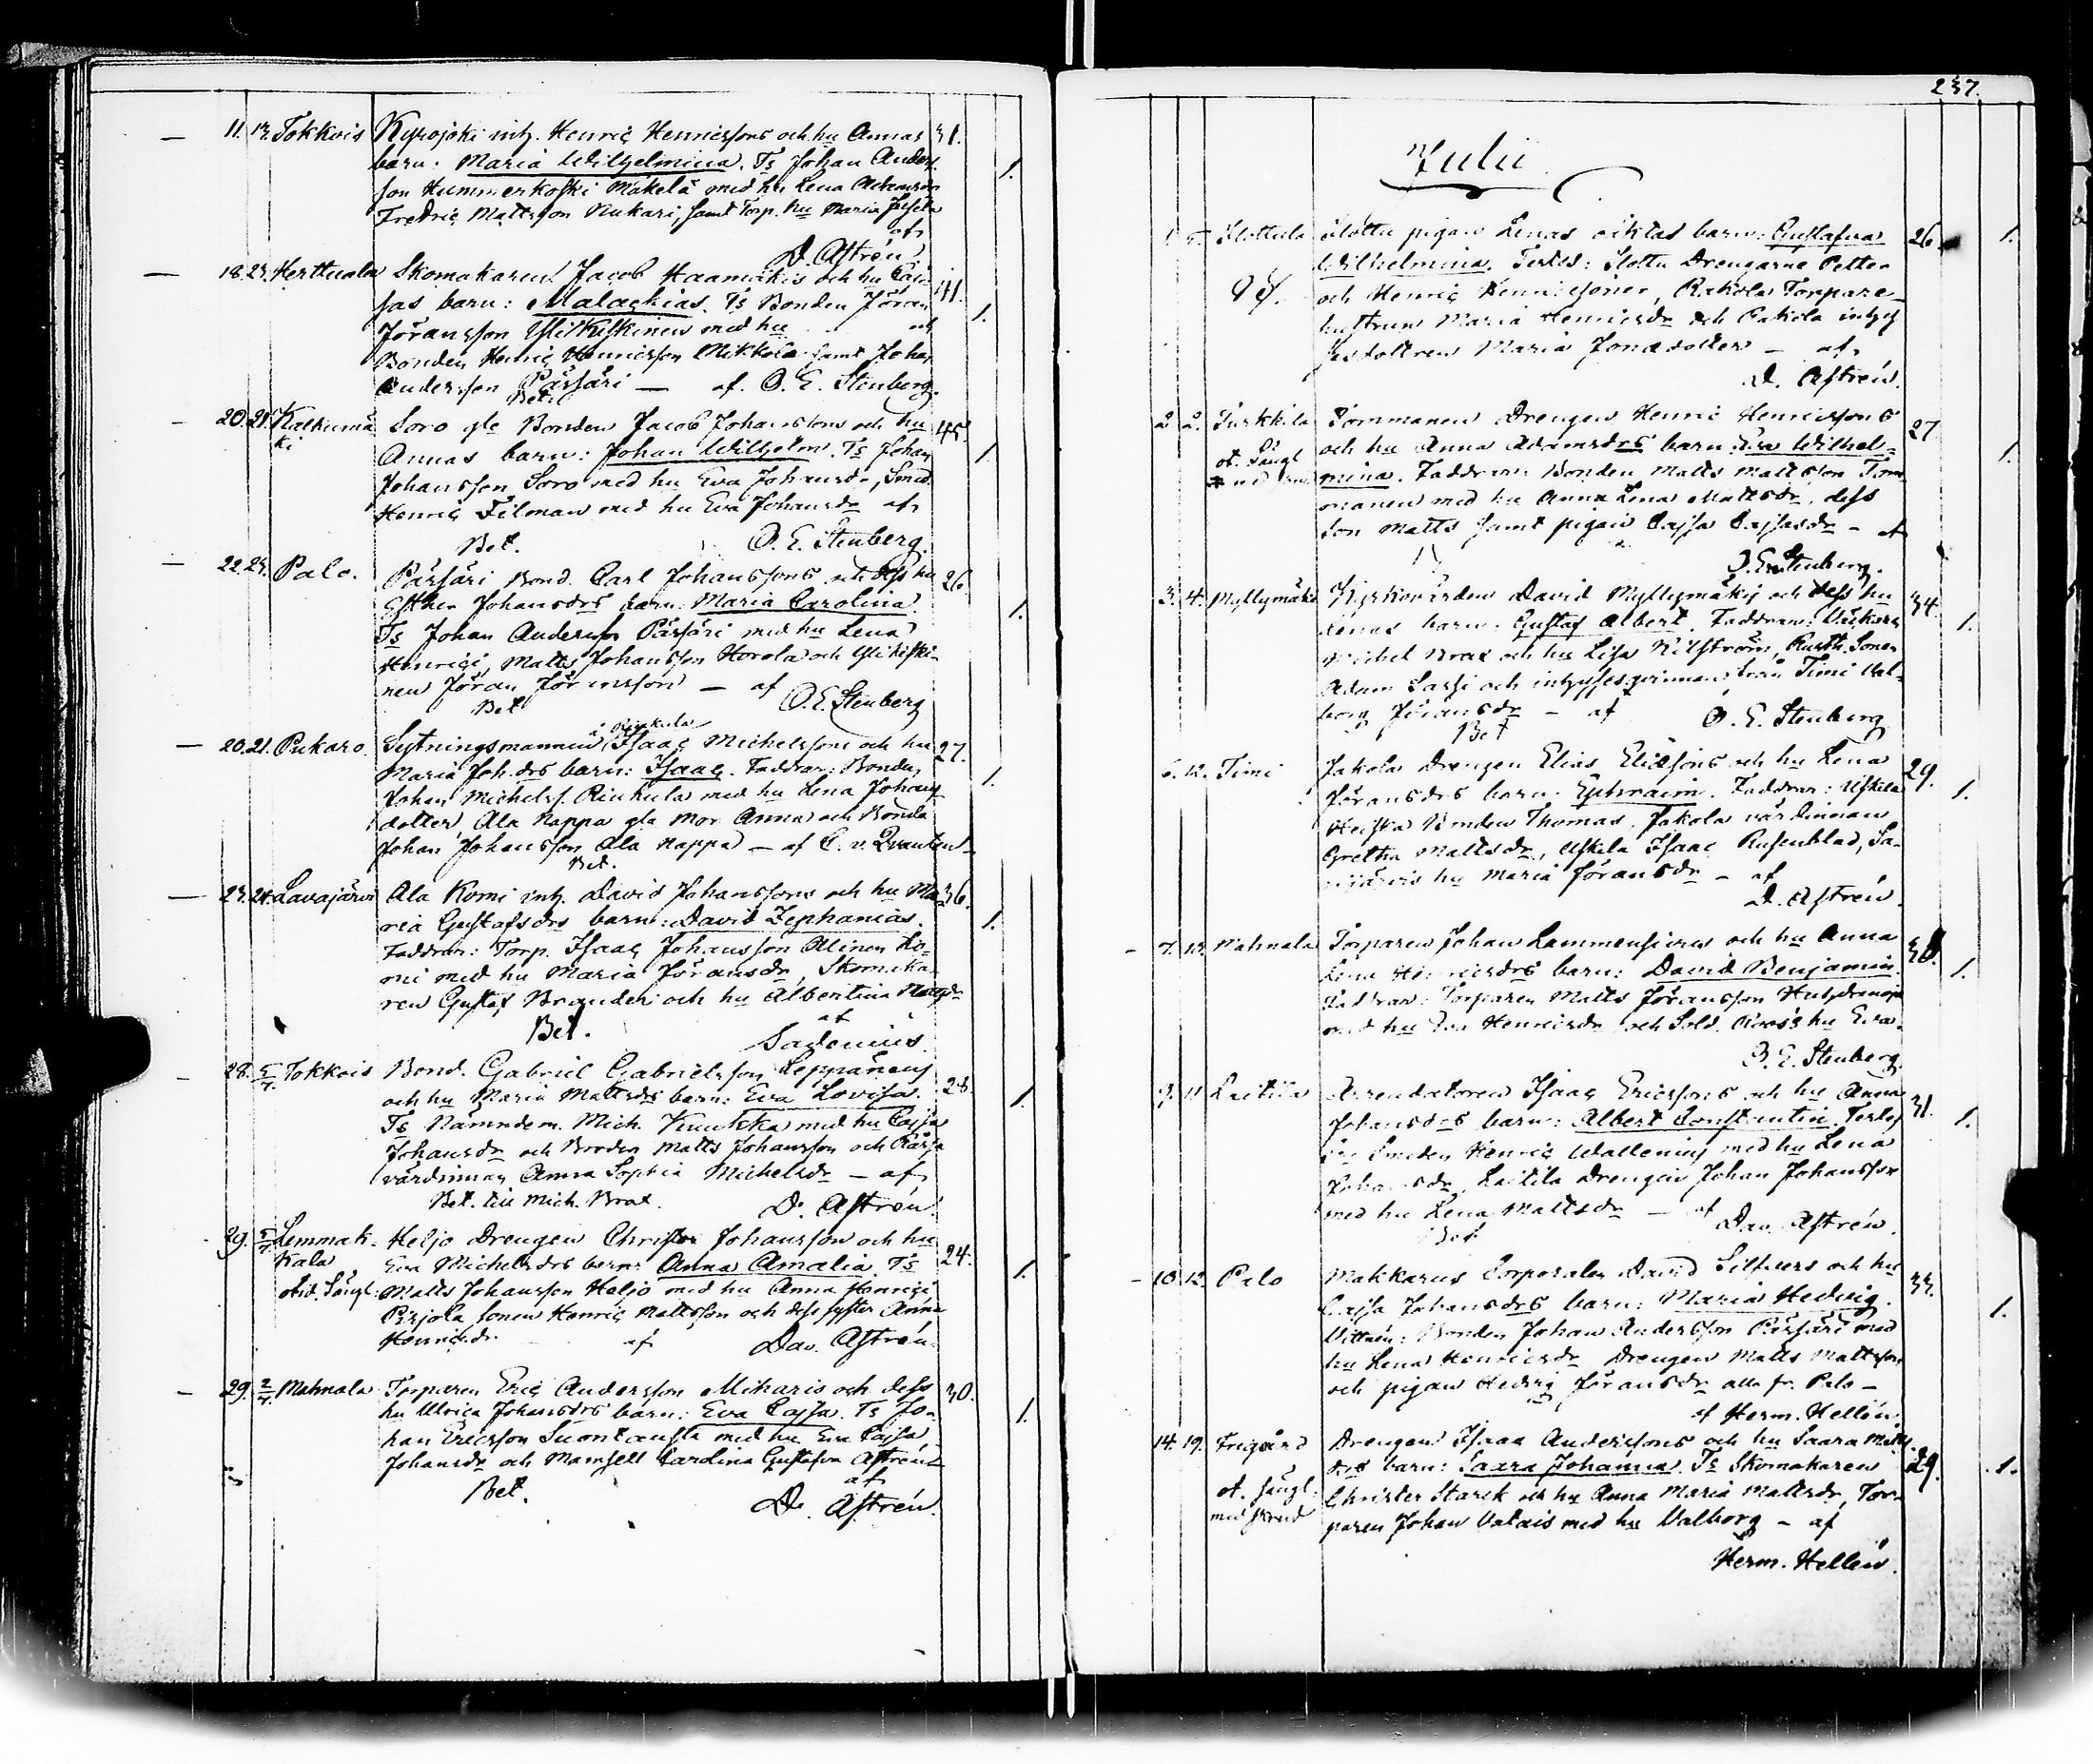 11. 13. Tokkois Kyrojoki inh. Henric Henricssons och hu Annas 31.
barn: Maria Wilhelmina. Ts Johan Anders-
son Hummerkoski Mäkelä med hu Lena Adamsdr
Fredric Mattsson Nukari, samt Torp. hu Maria
af
D. Astrén. 1.
18. 23. Herttuala Skomakaren Jacob Haamäkis och hu Caj-
sas barn: Malackias. Ts Bonden Jöran 41.
Jöransson Yliskiskinen med hu och 1.
Bonden Henric Henricsson Mikkola samt Johan
Andersson Pärssäri — af. O. E. Stenberg.
Bet.
20. 21. Kalkumä Soro gla Bonden Jacob Johanssons och hu 45.
ki Annas barn: Johan Wilhelm. Ts Johan 1.
Johansson Soro med hu Eva Johansdr, Smed.
Henric Tilman med hu Eva Johansdr af
Bet. O. E. Stenberg.
22. 23. Palo. Pärssäri Bond. Carl Johanssons och dess hu 26.
Esther Johansdrs barn: Maria Carolina. 1.
Ts Johan Andersson Pärssäri med hu Lena
Henrici, Matts Johansson Horola och Yliskiski-
nen Jöran Jöransson — af
Bet O. E. Stenberg
i Rinkula
20. 21. Pukaro. Sytningsmannen Isaac Michelssons och hu 27.
Maria Joh.drs barn: Isaac. Faddrar: Bonden 1.
Johan Michelss. Rinkula med hu Lena Johans
dotter, Ala Nappa gla Mor Anna och Bonde
Johan Johansson Ala Nappa — af C. v. Qvanten
Bet.
23. 24. Lavajärvi Ala Komi inh. David Johanssons och hu Ma- 36.
ria Gustafsdrs barn: David Zephanias. 1.
Faddrar: Torp. Isaac Johansson Alinen Ko-
mi med hu Maria Jöransdr, Skomaka-
ren Gustaf Brander och hu Albertina
Bet. af
Sadenius.
28. 5/7 Tokkois Bond. Gabriel Gabrielsson Leppänens 28.
och hu Maria Mattsdrs barn: Eva Lovisa. 1.
Ts Nämndem. Mich. Kuukka med hu Cajsa
Johansdr och Bonden Matts Johansson och
värdinnan Anna Sophia Michelsdr — af
Bet. till Mich. Brax. D. Astrén.
29. 5/7 Lemmak- Heljo Drengen Christer Johansson och hu
kala Eva Michelsdrs barn: Anna Amalia. Ts 24.
Matts Johansson Heljo med hu Anna Henrici 1.
Pirjola sonen Henric Mattsson och dess syster Anna
Henricsdr af Dav. Astrén.
29. 2/7 Mahnala Torparen Eric Andersson Miharis och dess 30.
hu Ulrica Johansdrs barn: Eva Cajsa. Ts Jo- 1.
han Ericsson Suontausta med hu Eva Cajsa
Johansdr och Mamsell Carolina Gustafva Astrén
af
Bet. D. Astrén.
237.
Julii
1. 5. Slottula Slottu pigan Lenas oäktas barn: Gustafva 26. 1.
Wilhelmina. Testes: Slottu Drengarne Petter
och Henric Henricssoner, Rakola Torpare-
hustrun Maria Henricsdr och Pakola
Maria Jonædotter — af
D. Astrén.
2. 2. Turkkila Tommanen Drengen Henric Henricssons 27.
och hu Anna Adamsdrs barn: Eva Wilhel- 1.
mina. Faddrar: Bonden Matts Mattsson Tom-
manen med hu Anna Lena Mattsdr, dess
Son Matts samt pigan Cajsa Cajsasdr — af
O. E. Stenberg.
3. 4. Myllymäki Kyrkovärden David Myllymäkis och dess hu 34.
Lenas barn: Gustaf Albert. Faddrar: 1.
Michel Brax och hu Lisa Kilström, Rusth. Sonen
Adam Sassi och från Timi Val-
borg Jöransdr — af O. E. Stenberg
Bet
6. 12. Timi Jakola Drengen Elias Eliassons och hu Lena 29.
Jöransdrs barn: Ephraim. Faddrar: Uskila 1.
Heiska Bonden Thomas, Jakola värdinnan
Gretha Mattsdr, Uskila Isaac Rusenblad, Sa-
hu Maria Jöransdr — af
D. Astrén.
7. 13. Mahnala Torparen Johan Lammensivus och hu Anna
Lena Henricsdrs barn: David Benjamin. 1.
Faddrar: Torparen Matts Jöransson
med hu Eva Henricsdr och Sold. Roos's hu Eva.
O. E. Stenberg
9. 11. Laitila Arrendatoren Isaac Ericssons och hu Anna 31.
Johansdrs barn: Albert Constantin. Testes 1.
Smeden Henric Wallenius med hu Lena
Johansdr, Laitila Drengen Johan Johansson
med hu Lena Mattsdr — af
Bet. Dav. Astrén.
10. 12. Palo Makkarus Corporalen David Silfvers och hu 33.
Cajsa Johansdrs barn: Maria Hedvig. 1.
Vittnen: Bonden Johan Andersson Pärssäri med
hu Lena Henricsdr Drengen Matts Mattsson
och pigan Hedvig Jöransdr alla fr. Palo —
af Herm. Hellén.
14. 19. Frigård Drengen Isaac Anderssons och hu Saara Matts
drs barn: Saara Johanna. Ts Skomakaren 29. 1.
ot. sängl. Christer Starck och hu Anna Maria Mattsdr, Tor-
paren Johan Vatais med hu Valborg — af
Herm. Hellén.